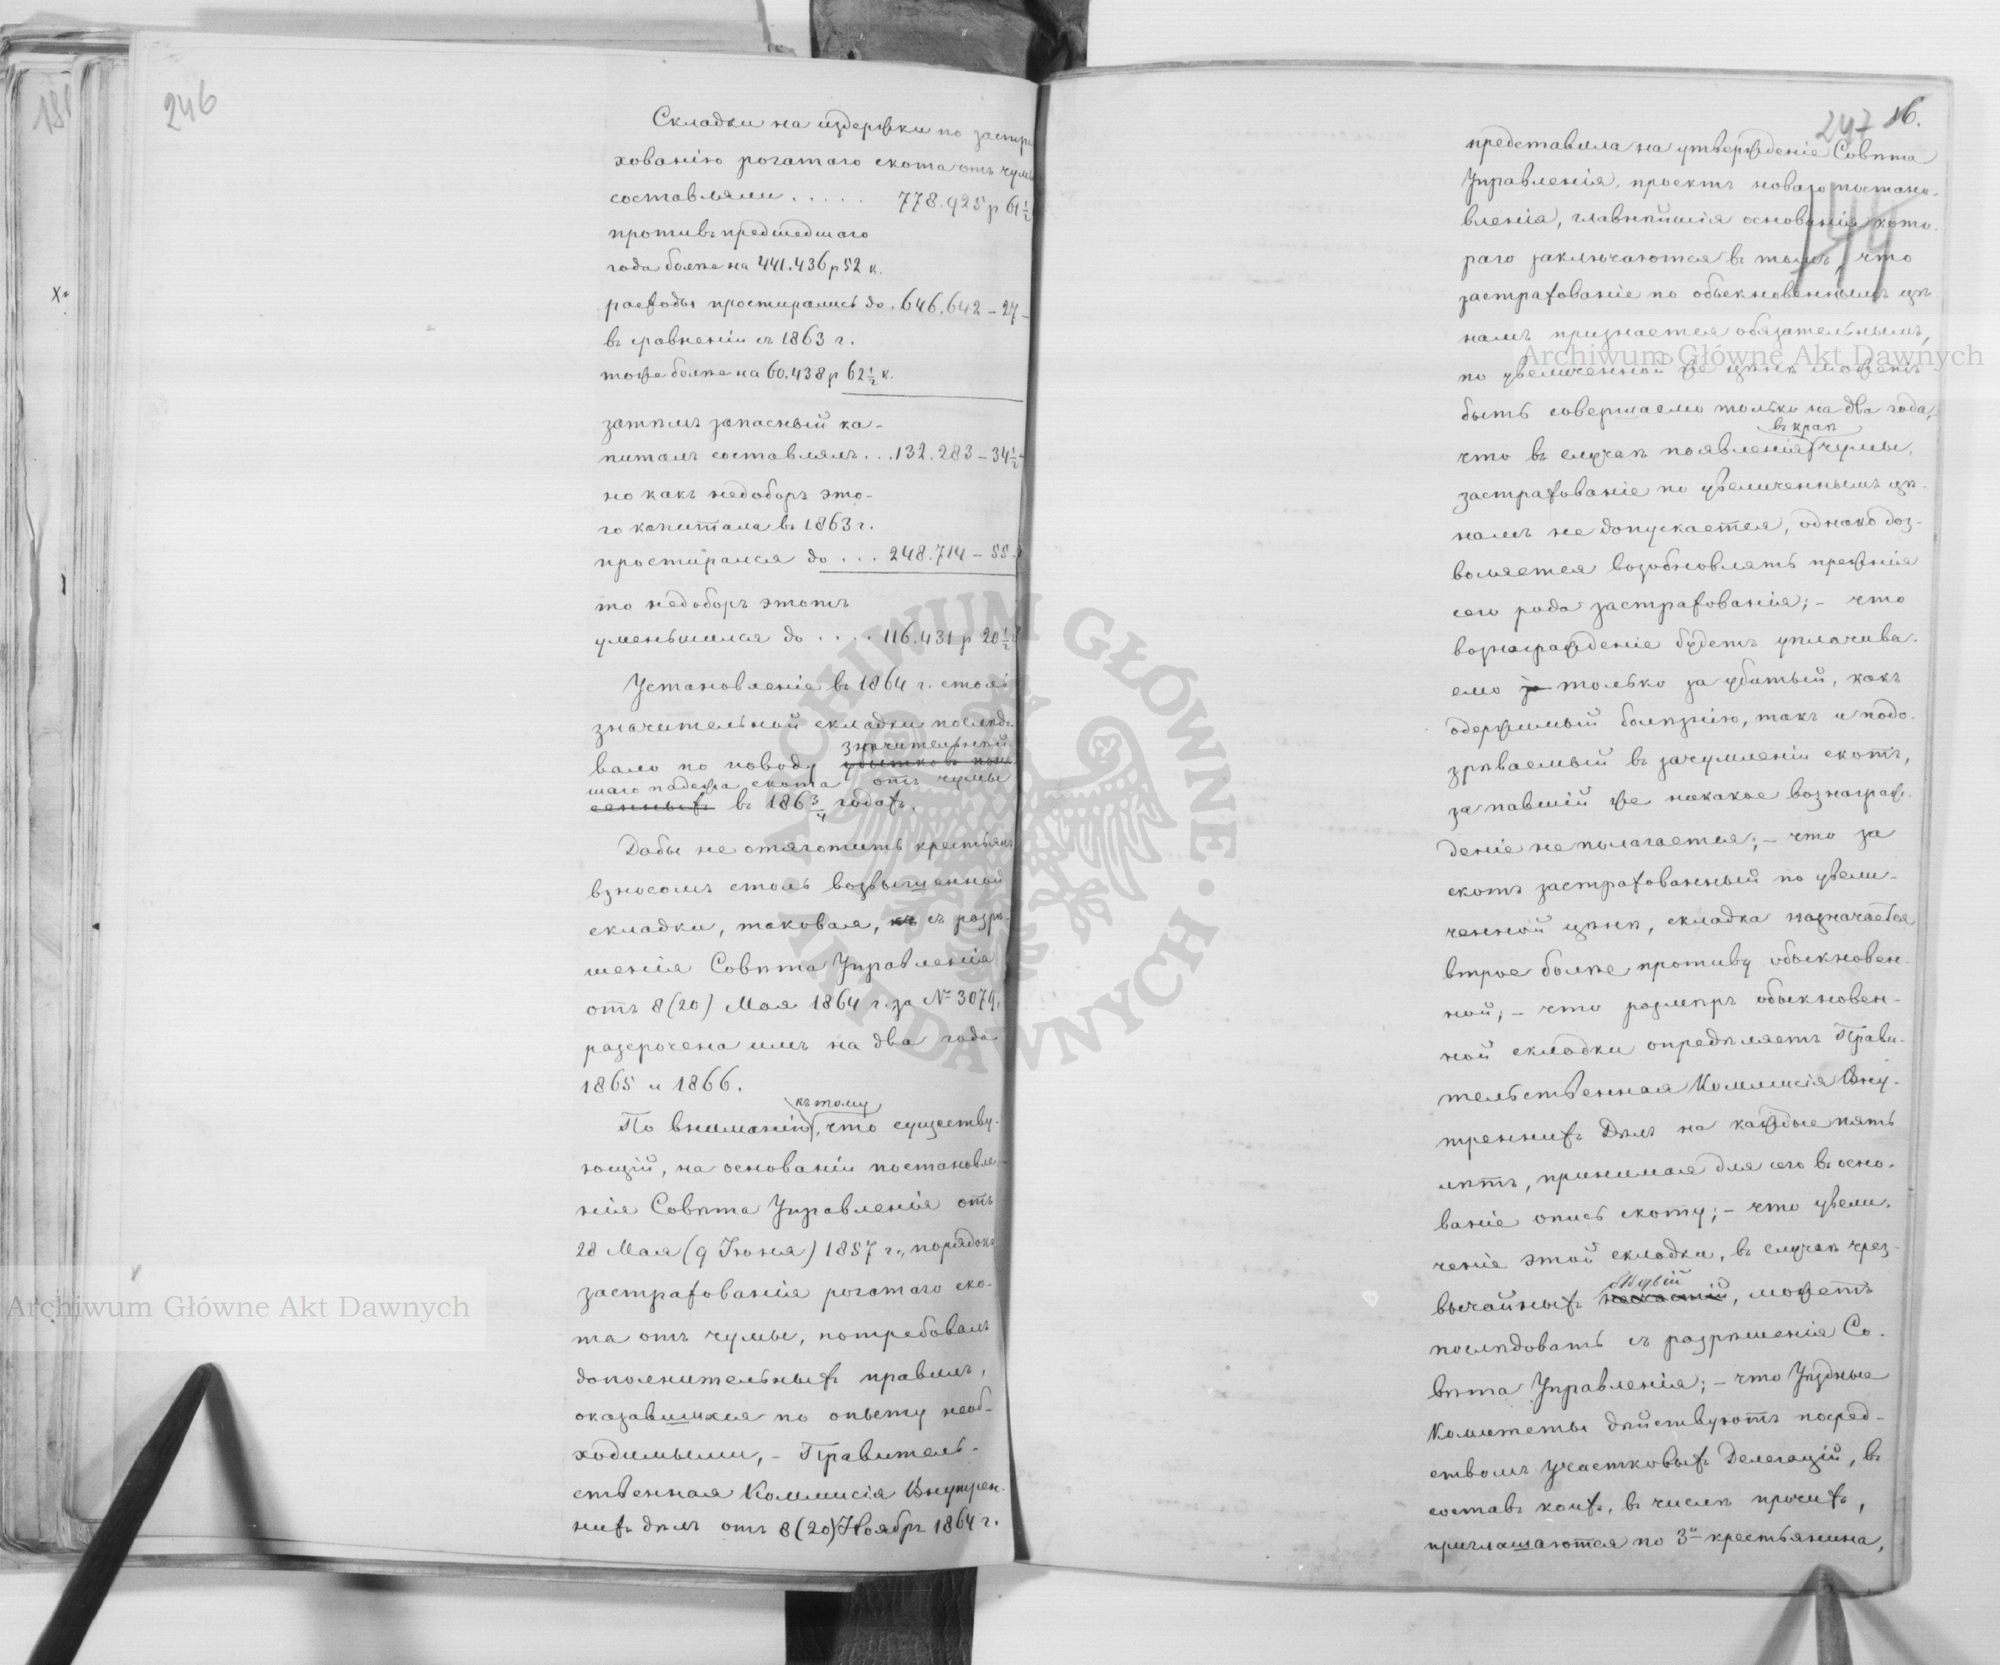 246
Складки на издержки по застра
хованію рогатаго скота отъ чумы
составляли . . . . . 778.925 р 61½
противъ предшедшаго
года болѣе на 441.436 р 52 к.
расходы простирались до . 646.642 – 27 –
въ сравненіи съ 1863 г.
тоже болѣе на 60.438 р 62½ к.
затѣмъ запасный ка-
питалъ составлялъ . . . 132.283 – 34½
но какъ недоборъ это-
го капитала въ 1863 г.
простирался до . . . 248.714 – 55
то недоборъ этотъ
уменьшился до . . . . 116.431 р 20½
Установленіе въ 1864 г. столь
значительной складки послѣдо
вало по поводу
значительнѣй
шаго падежа скота отъ чумы
въ 1863/4 годахъ.
Дабы не отяготить крестьянъ
взносомъ столь возвышенной
складки, таковая, съ разрѣ-
шенія Совѣта Управленія
отъ 8 (20) Мая 1864 г. за № 3079,
разсрочена имъ на два года
1865 и 1866.
къ тому
По вниманію, что существу-
ющій, на основаніи постановле-
нія Совѣта Управленія отъ
28 Мая (9 Іюня) 1857 г., порядокъ
застрахованія рогатаго ско-
та отъ чумы, потребовалъ
дополнительныхъ правилъ,
оказавшихся по опыту необ-
ходимыми, – Правитель-
ственная Коммисія Внутрен-
нихъ дѣлъ отъ 8 (20) Ноябрѣ 1864 г.
247 16.
представила на утвержденіе Совѣта
Управленія, проектъ новаго постано-
вленія, главнѣйшія основанія кото-
раго заключаются въ томъ, что
застрахованіе по обыкновеннымъ цѣ-
намъ признается обязательнымъ,
по увеличенной же цѣнѣ можетъ
быть совершаемо только на два года,
въ краѣ
что въ случаѣ появленія чумы,
застрахованіе по увеличеннымъ цѣ-
намъ не допускается, однако доз-
воляется возобновлять прежнія
сего рода застрахованія; – что
вознагражденіе будетъ уплачива-
емо только за убитый, какъ
одержимый болѣзнію, такъ и подо-
зрѣваемый въ зачумленіи скотъ,
за павшій же никакое вознаграж-
деніе не полагается; – что за
скотъ застрахованный по увели-
ченной цѣнѣ, складка назначается
втрое болѣе противу обыкновен-
ной; – что размѣръ обыкновен-
ной складки опредѣляетъ Прави-
тельственная Коммисія Вну-
треннихъ Дѣлъ на каждые пять
лѣтъ, принимая для сего въ осно-
ваніе опись скоту; – что увели-
ченіе этой складки, въ случаѣ чрез-
вычайныхъ бѣдствій, можетъ
послѣдовать съ разрѣшенія Со-
вѣта Управленія; – что Уѣздные
Комитеты дѣйствуютъ посред-
ствомъ участковыхъ Делегацій, въ
составъ коихъ, въ числѣ прочихъ,
приглашаются по 3 крестьянина,
Archiwum Główne Akt Dawnych
Archiwum Główne Akt Dawnych
ARCHIWUM GŁÓWNE · AKT DAWNYCH ·